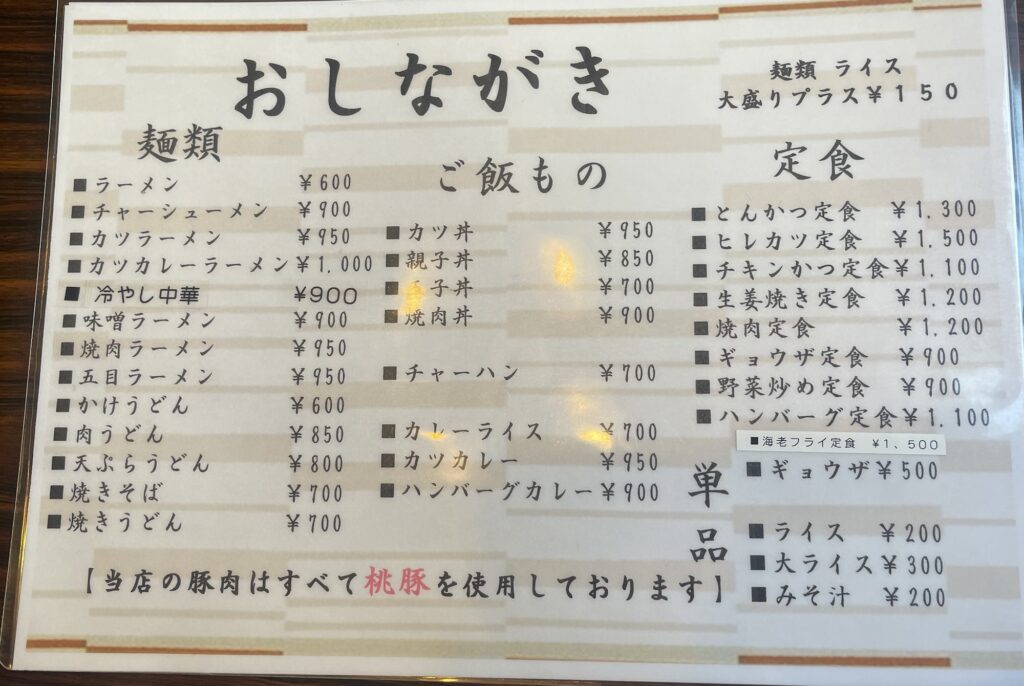 おしながき
麺類 ライス
大盛りプラス¥150
麺類
■ラーメン ¥600
■チャーシューメン ¥900
■カツラーメン ¥950
■カツカレーラーメン¥1,000
■ 冷やし中華 ¥900
■味噌ラーメン ¥900
■焼肉ラーメン ¥950
■五目ラーメン ¥950
■かけうどん ¥600
■肉うどん ¥850
■天ぷらうどん ¥800
■焼きそば ¥700
■焼きうどん ¥700
ご飯もの
■カツ丼 ¥950
■親子丼 ¥850
■子丼 ¥700
■焼肉丼 ¥900
■チャーハン ¥700
■カレーライス ¥700
■カツカレー ¥950
■ハンバーグカレー¥900
定食
■とんかつ定食 ¥1,300
■ヒレカツ定食 ¥1,500
■チキンかつ定食¥1,100
■生姜焼き定食 ¥1,200
■焼肉定食 ¥1,200
■ギョウザ定食 ¥900
■野菜炒め定食 ¥900
■ハンバーグ定食¥1,100
■海老フライ定食 ¥1、500
単品
■ギョウザ¥500
■ライス ¥200
■大ライス¥300
■みそ汁 ¥200
【当店の豚肉はすべて桃豚を使用しております】